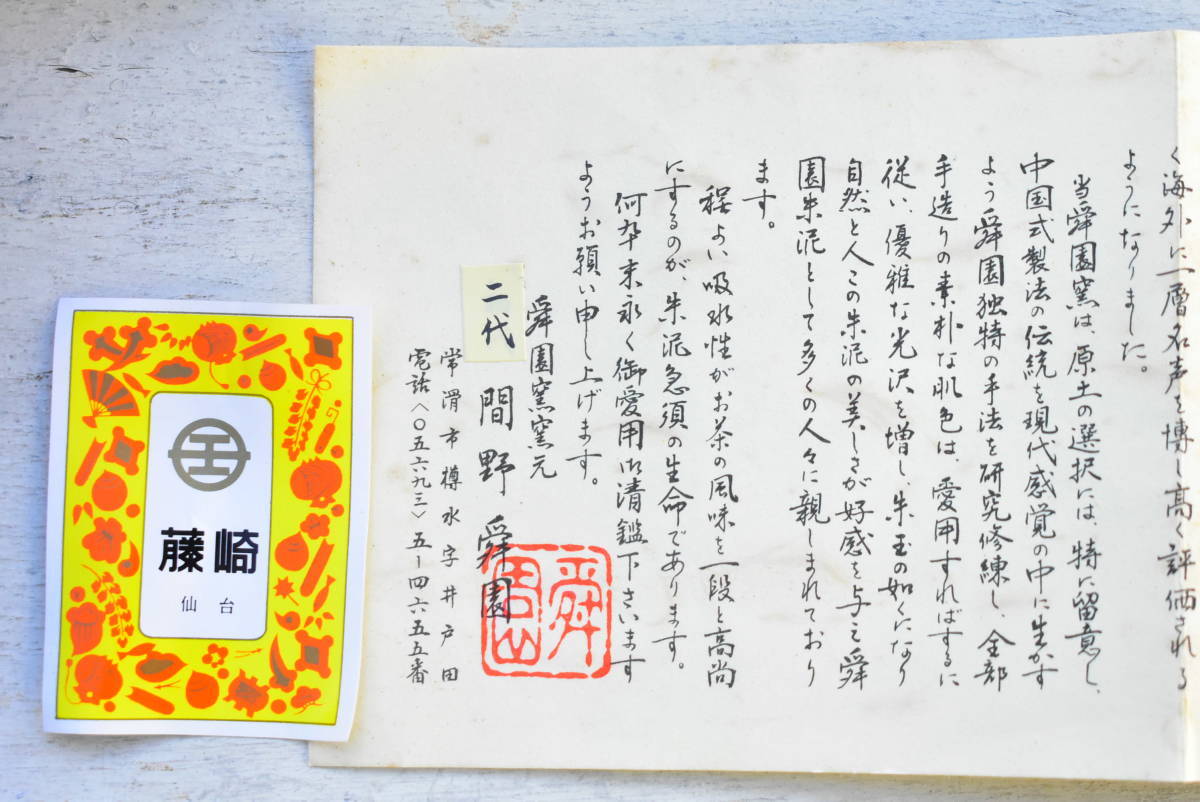 く海外に一層名声を博し高く評価される
ようになりました。
当舜園窯は、原土の選択には、特に留意し、
中国式製法の伝統を現代感覚の中に生かす
よう舜園独特の手法を研究修練し、全部
手造りの素朴な肌色は、愛用すればするに
従い、優雅な光沢を増し、朱玉の如くになり
自然と人この朱泥の美しさが好感を与え舜
園朱泥として多くの人々に親しまれており
ます。
程よい吸水性がお茶の風味を一段と高尚
にするのが、朱泥急須の生命であります。
何卒末永く御愛用御清鑑下さいます
ようお願い申し上げます。
舜園窯窯元
二代 間野舜園
常滑市樽水字井戸田
電話〈〇五六九三〉五-四六五五番
藤崎
仙台